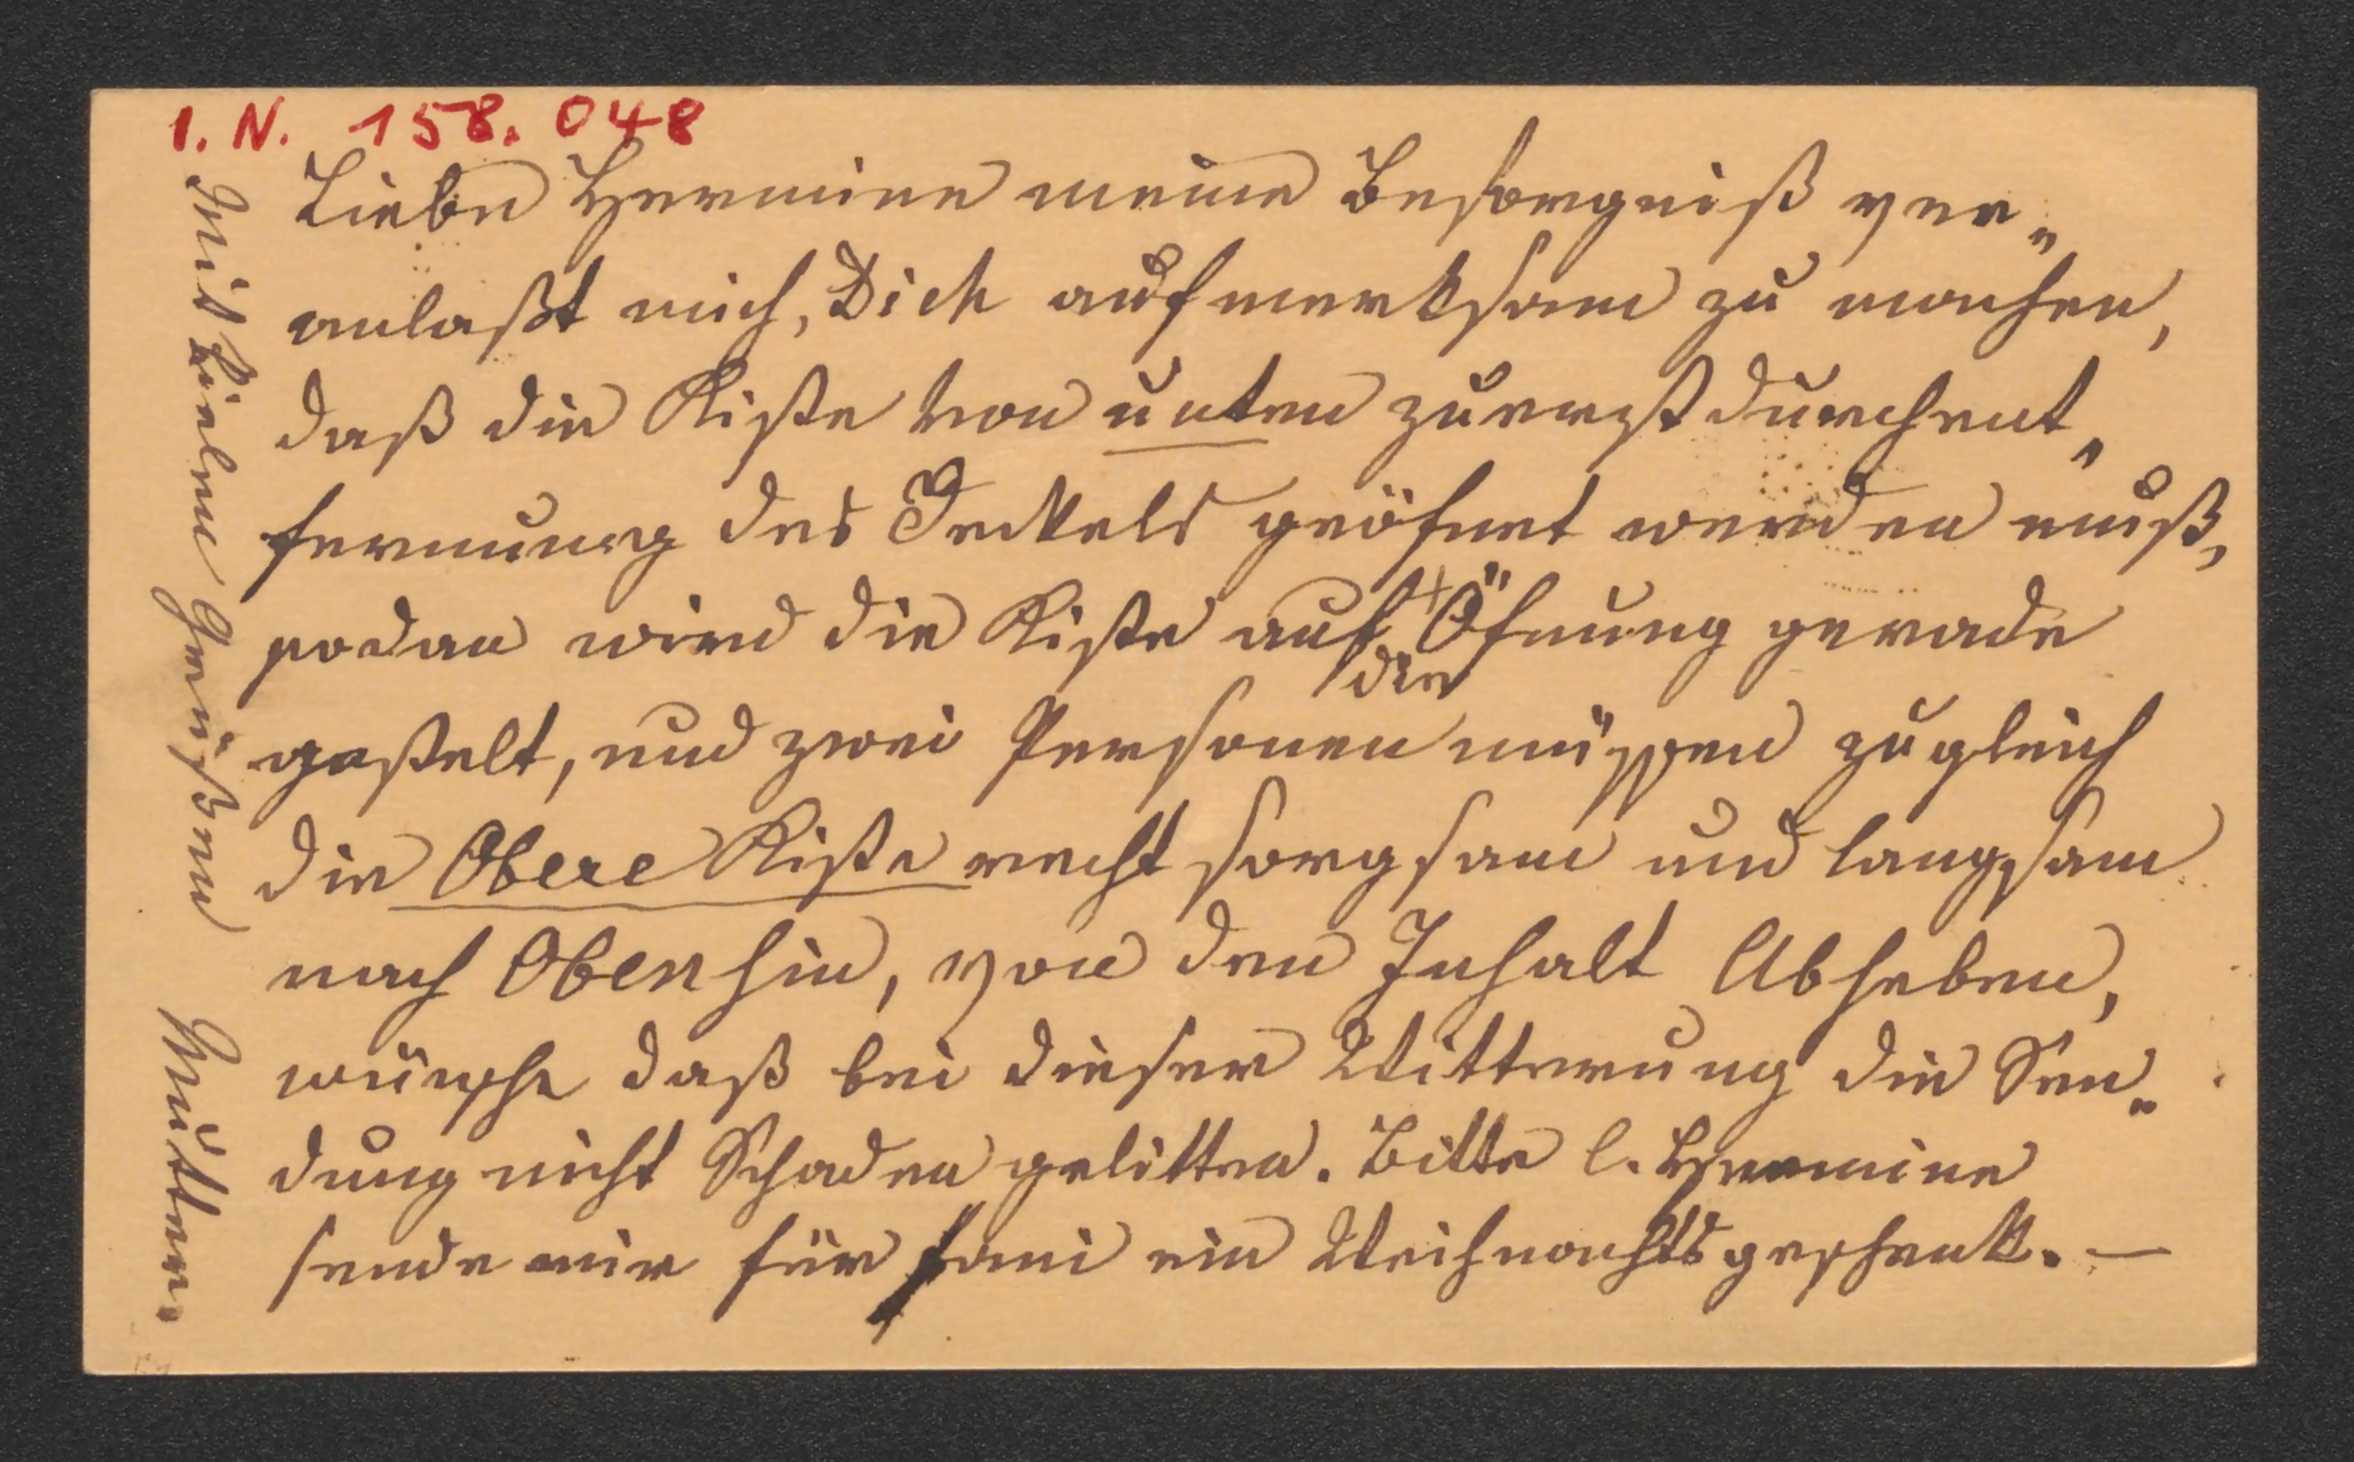 I. N. 158.048
Liebe Hermine meine Besorgniß ver„
anlaßt mich, Dich aufmerksam zu machen,
daß die Kiste von unten zuerst durch ent„
fernung des Deckels geöfnet werden muß,
sodan wird die Kiste auf + Öfnung gerade
die
gestelt, und zwei Personen müssen zugleich
die Obere Kiste recht sorgsam und langsam
nach Oben hin, von den Inhalt Abheben,
wünsche daß bei dieser Witterung die Sen„
dung nicht Schaden gelitten. Bitte l. Hermine
sende mir für Fani ein Weihnachtsgeschenk. —
Mit Vielen Grüßen Mutter.